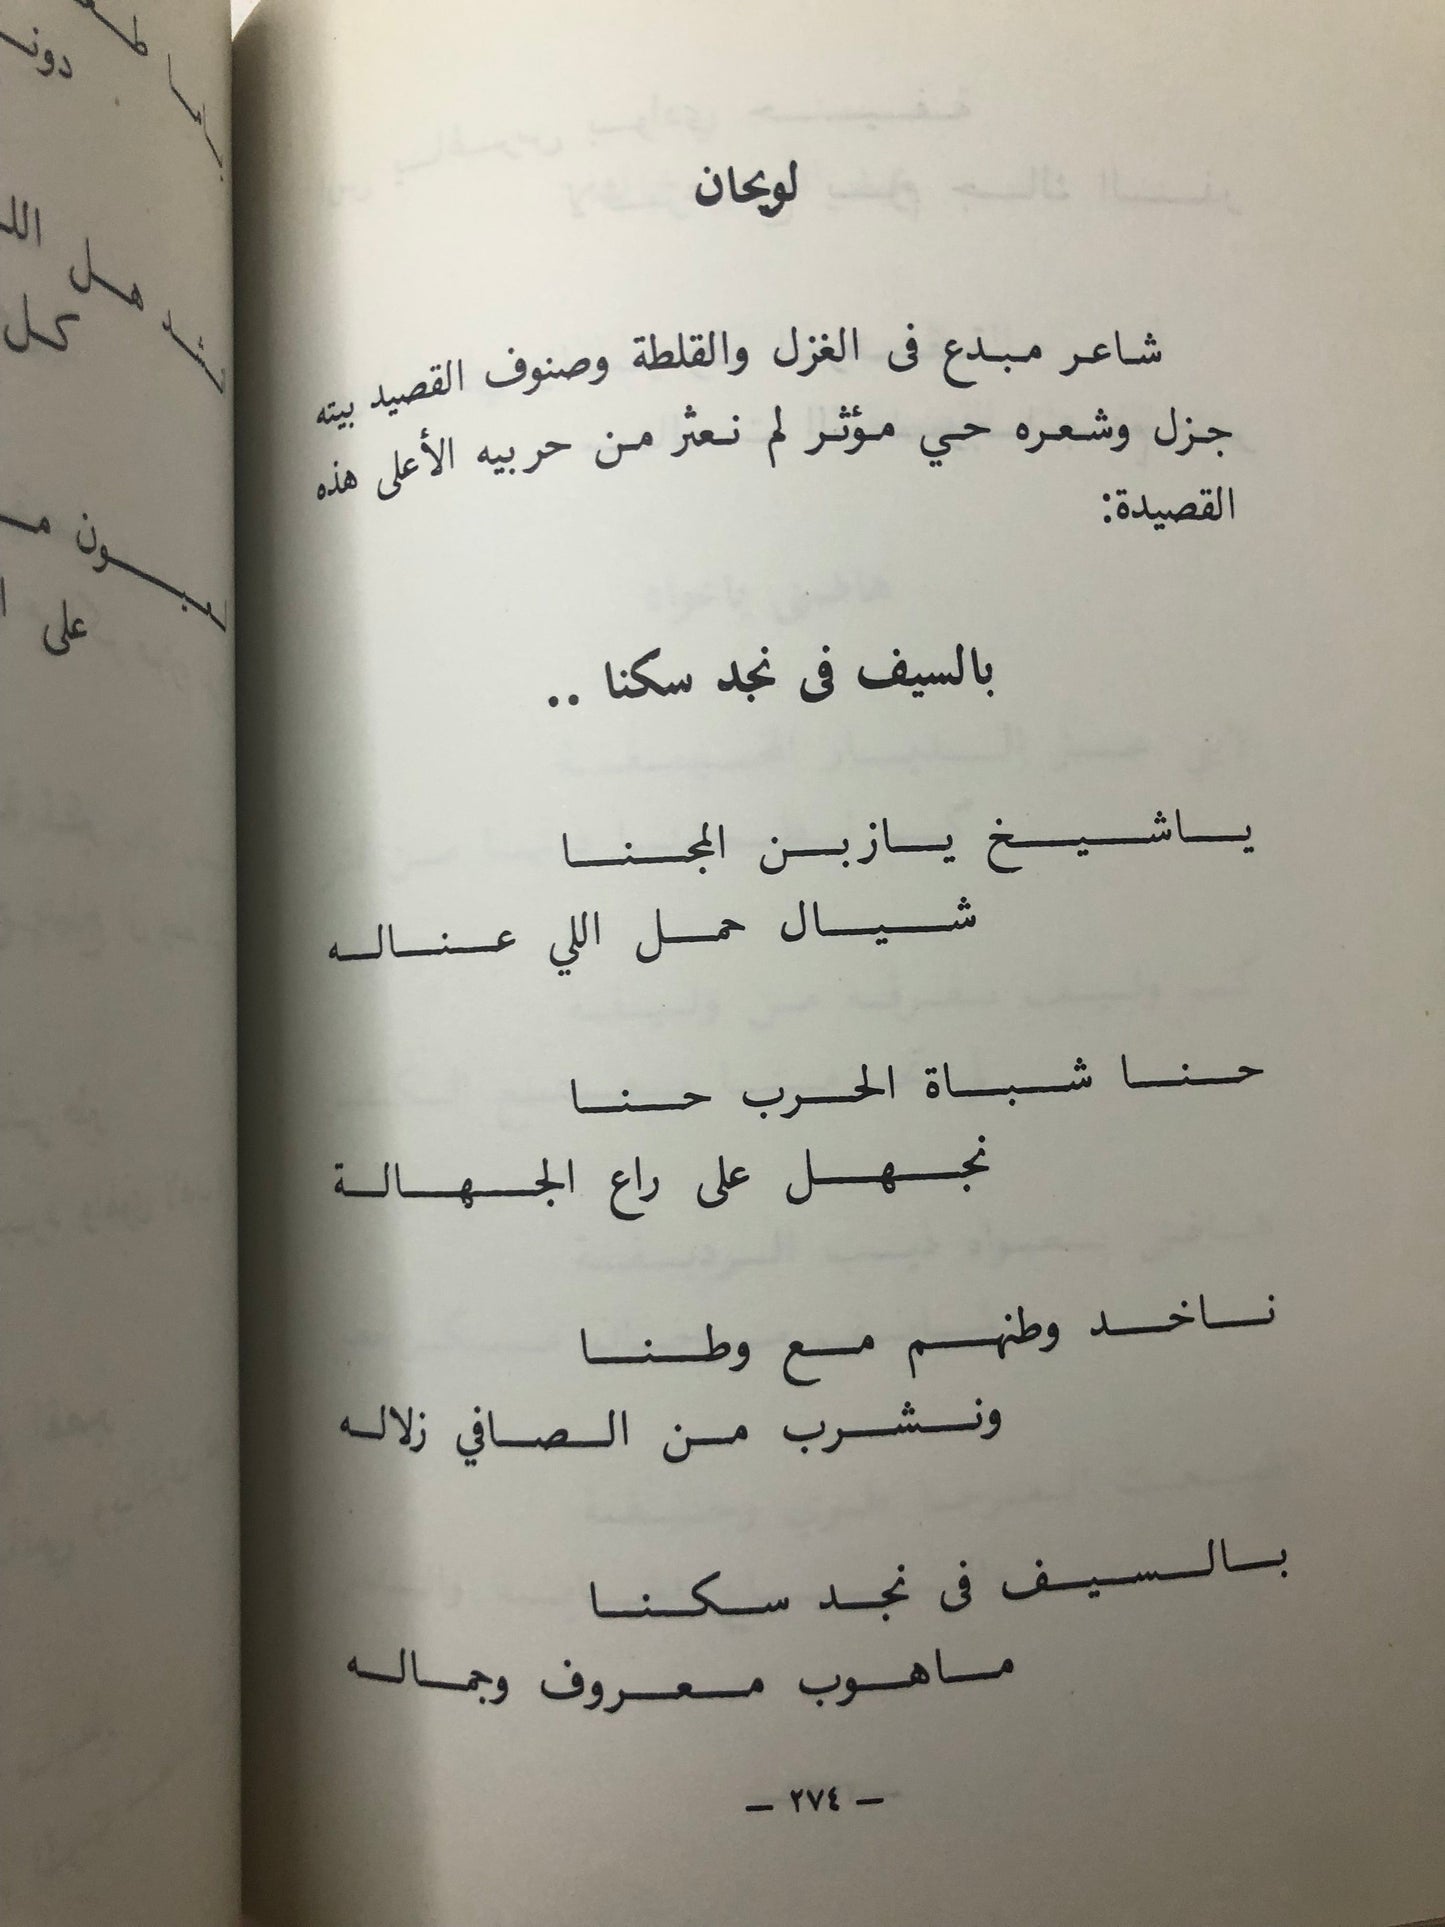 لويحان
شاعر مبدع فى الغزل والقلطة وصنوف القصيد بيته
جزل وشعره حي مؤثر لم نعثر من حربيه الأعلى هذه
القصيدة:
بالسيف فى نجد سكنا ..
ياشيخ يازبن المجنا
شيال حمل اللي عناله
حنا شباة الحرب حنا
نجهل على راع الجهالة
ناخد وطنهم مع وطنا
ونشرب من الصافي زلاله
بالسيف فى نجد سكنا
ماهوب معروف وجماله
— ٢٧٤ —
دون
هل الل
كل
على